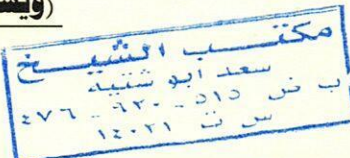 (ويس
مكتب الشيخ
سعد ابو شتيه
ب ض ٥١٥ - ٦٢٠ - ٤٧٦
س ت ١٤٠٢١